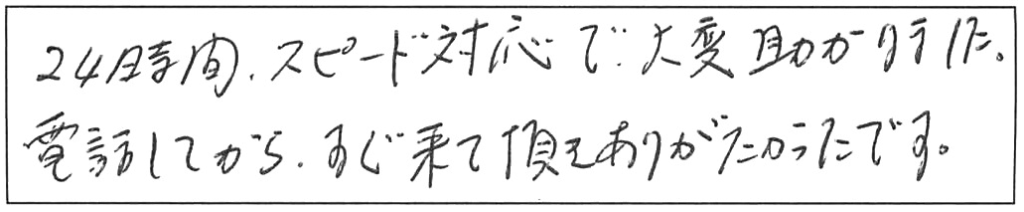 24時間、スピード対応で大変助かりました。
電話してから、すぐ来て頂きありがたかったです。